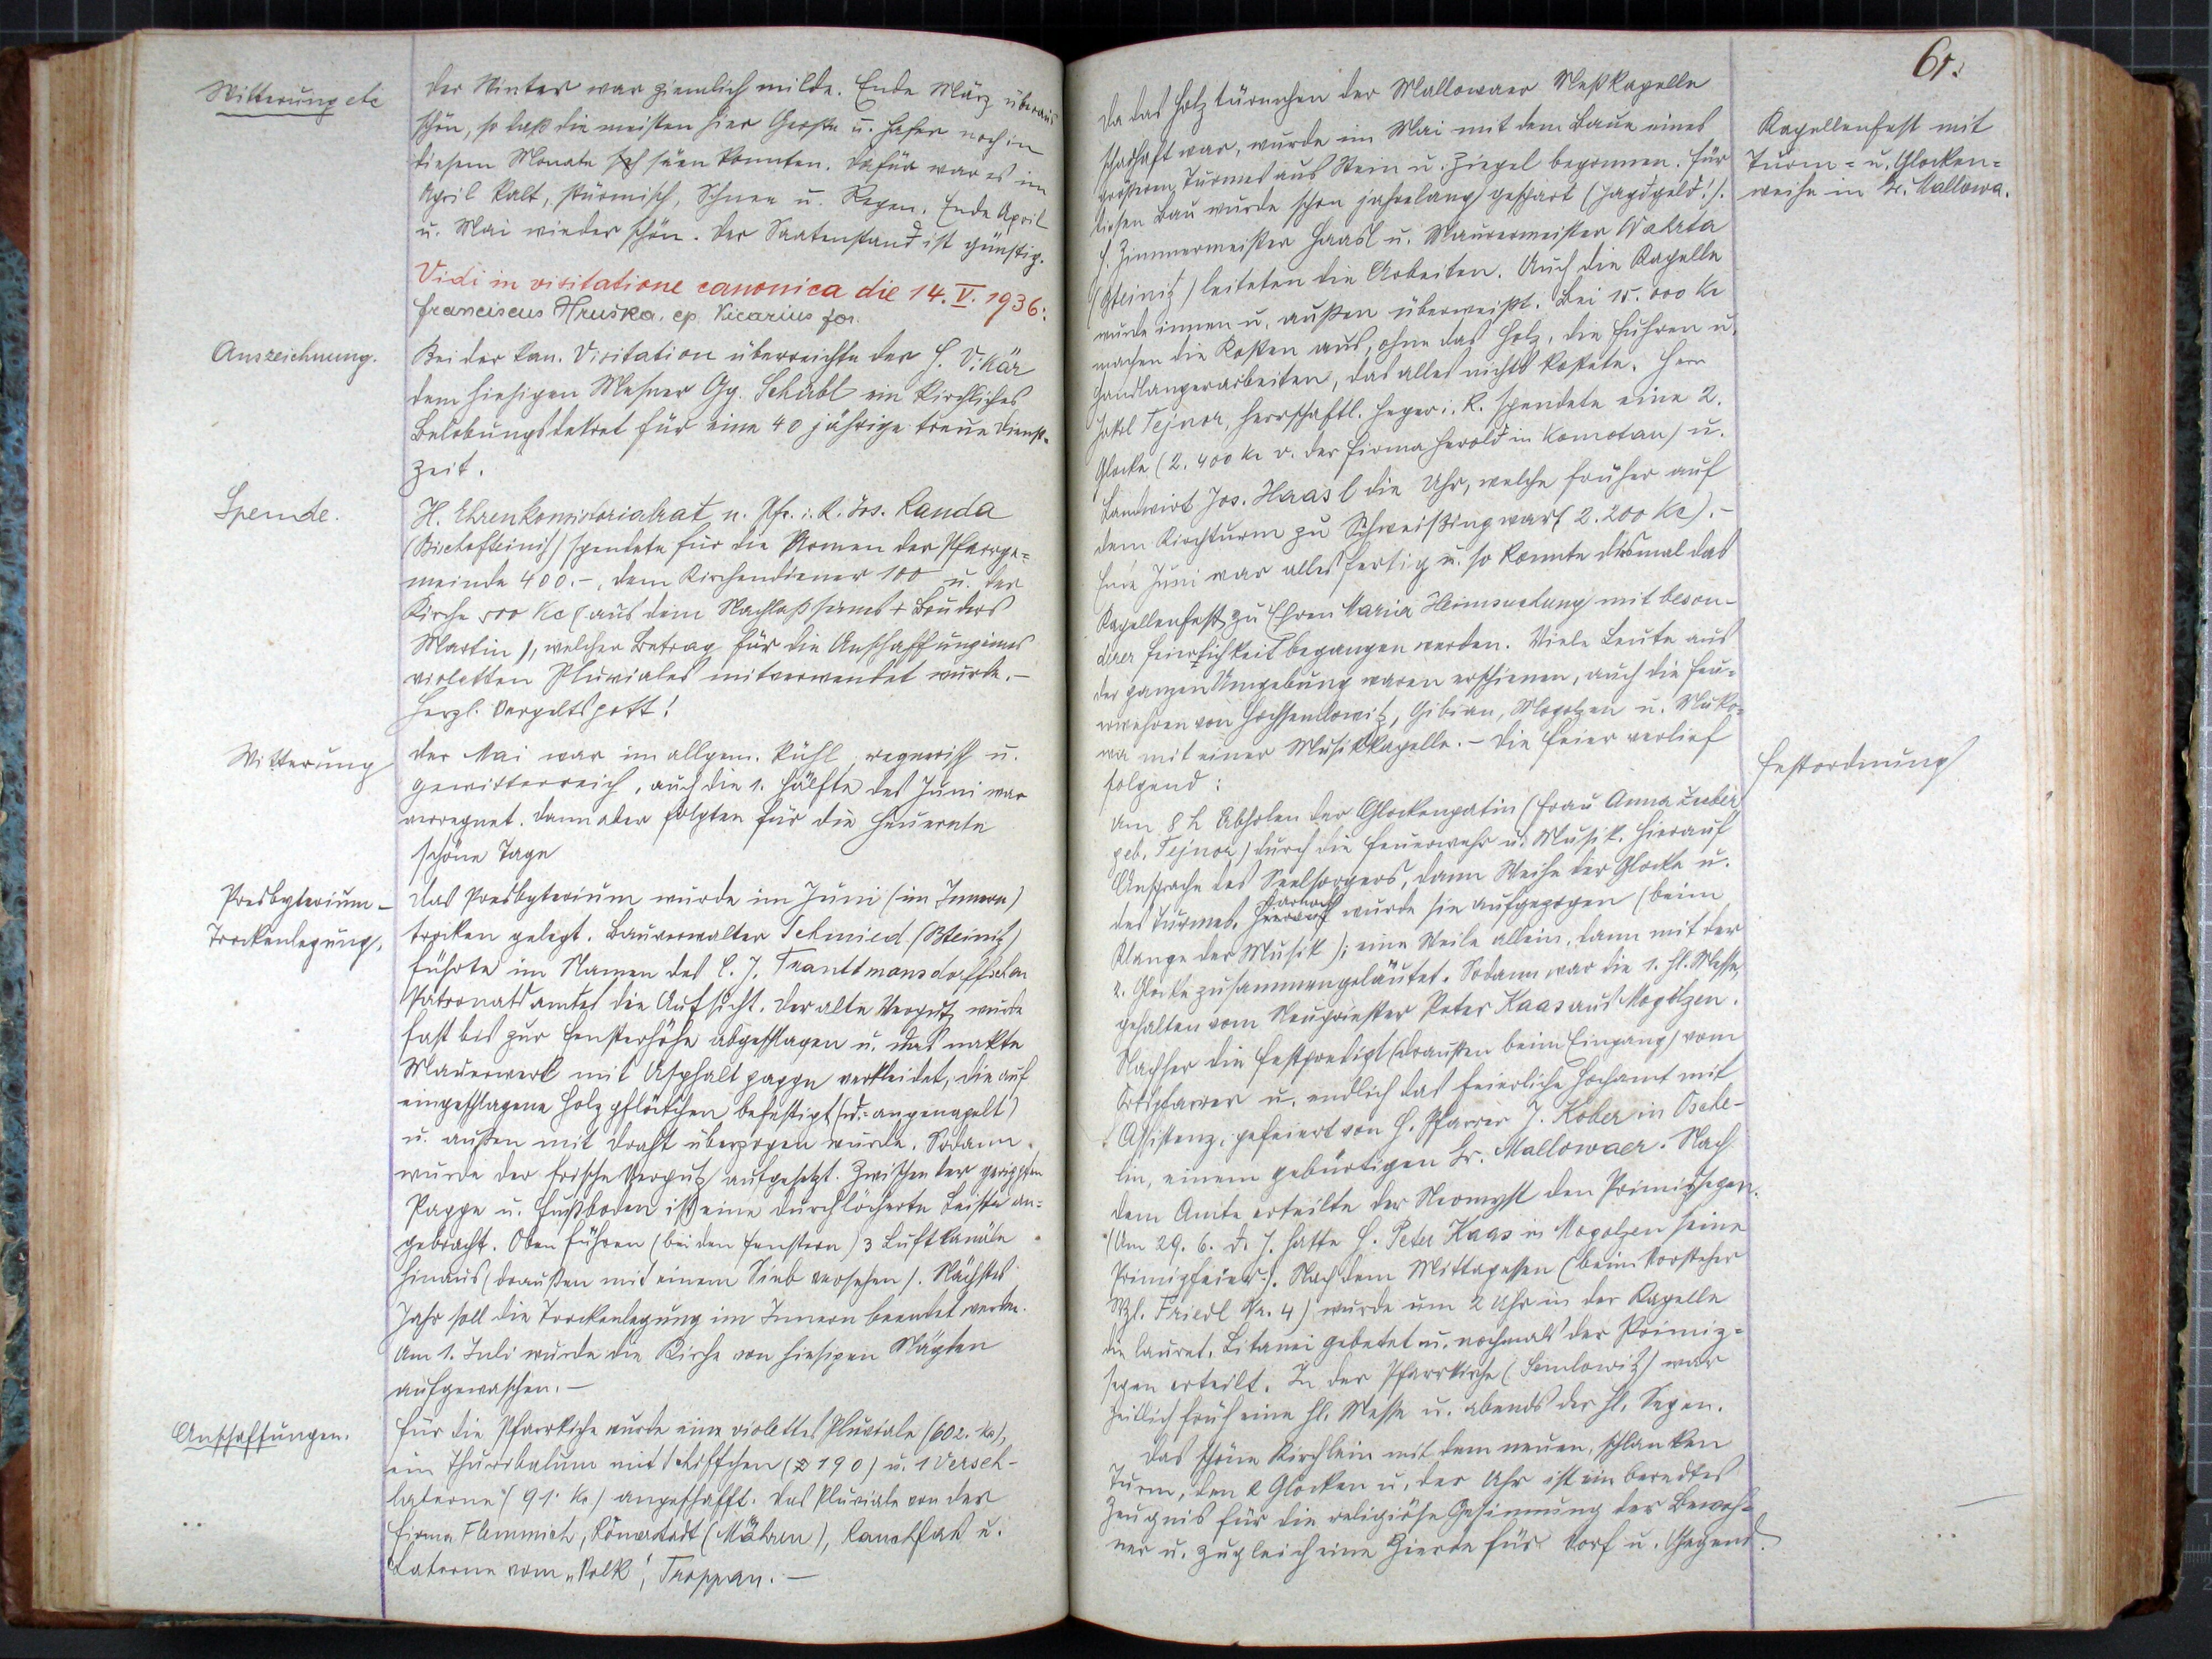 Witterung etc
Der Winter war ziemlich milde. Ende März überaus
schön, so daß die meisten hier Gerste u. Hafer noch in
diesem Monate säen konnten. Dafür war es im
April kalt, stürmisch, Schnee u. Regen. Ende April
u. Mai wieder schön. Der Saatenstand ist günstig.
Vidi in visitatione canonica die 14. V. 1936:
Franciscus Hruska, ep. Vicarius for.
Auszeichnung.
Bei der kan. Visitation überreichte der H. Vikär
dem hiesigen Mesner Gg. Schübl ein kirchliches
Belobungsdekret für eine 40 jährige treue Dienst-
zeit.
Spende.
H. Ehrenkonsistorialrat u. Pfr. i. R. Jos. Randa
(Bischofteinitz) spendete für die Armen der Pfarrge=
meinde 400.-, dem Kirchendiener 100 u. der
Kirche 500 Kc (aus dem Nachlaß seines + Bruders
Martin), welcher Betrag für die Anschaffung eines
violetten Pluviales mitverwendet wurde.-
Herzl. Vergeltsgott!
Witterung
Der Mai war im allgem. kühl, regnerisch u.
gewitterreich, auch die 1. Hälfte des Juni war
verregnet. Dann aber folgten für die Heuernte
schöne Tage
Presbyterium-
Trockenlegung.
Das Presbyterium wurde im Juni (im Innern)
trocken gelegt. Bauverwalter Schmied (Bteinitz)
führte im Namen des C. J. Trauttmansdorffschen
Patronatsamtes die Aufsicht. Der alte Verputz wurde
fast bis zur Fensterhöhe abgeschlagen u. das nakte
Mauerwerk mit Asphaltpappe verkleidet, die auf
eingeschlagene Holzpflöckchen befestigt (d.=angenagelt)
u. außen mit Draht überzogen wurde. Sodann
wurde der frische Verputz aufgesetzt. Zwischen der gerippten
Pappe u. Fußboden ist eine durchlöcherte Leiste an=
gebracht. Oben führen (bei den Fenstern) 3 Luftkanäle
hinaus (draußen mit einem Sieb versehen). Nächstes
Jahr soll die Trockenlegung im Innern beendet werden.
Am 1. Juli wurde die Kirche von hiesigen Mägden
aufgewaschen.-
Anschaffungen.
Für die Pfarrkiche wurde eine violettes Pluviale (602. Kc),
ein Thuribulum mit Schiffchen (190) u. 1 Verseh-
laterne (91. Kc) angeschafft. Das Pluviale von der
Firma Flemmich, Römerstadt (Mähren), Rauchfaß u.
Laterne vom "Volk", Troppau.-
61.
Kapellenfest mit
Turm= u. Glocken=
weihe in Kr. Mallowa.
Da das Holztürmchen der Mallowaer Meßkapelle
schadhaft war, wurde im Mai mit dem Baue eines
größeren Turmes aus Stein u. Ziegel begonnen. Für
diesen Bau wurde schon jahrelang gespart (Jagdgeld!).
H. Zimmermeister Haasl u. Maurermeister Wahrta
(Bteinitz) leiteten die Arbeiten. Auch die Kapelle
wurde innen u. außen überweißt. Bei 15.000 Kc
machen die Kosten aus, ohne das Holz, die Fuhren u.
Handlangerarbeiten, das alles nichts kostete. Herr
Tejnor, herrschaftl. Heger i. R. spendete eine 2.
Glocke (2.400 Kc v. der Firma Herold in Komotau) u.
Landwirt Jos. Haasl die Uhr, welche früher auf
dem Kirchturm zu Schweißing war (2.200 Kc).-
Ende Juni war alles fertig u. so konnte diesmal das
Kapellenfest zu Ehren Mariä Heimsuchung mit beson-
derer Feierlichkeit begangen werden. Viele Leute aus
der ganzen Umgebung waren erschienen, auch die Feu=
erwehren von Hochsemlowitz, Gibian, Mogolzen u. Muko=
wa mit einer Musikkapelle.- Die Feier verlief
folgend:
Festordnung
Um 8 h Abholen der Glockenpatin (Frau Anna
geb. Tejnor) durch die Feuerwehr u. Musik. Hierauf
Ansprache des Seelsorgers, dann Weihe der Glocke u.
des Turmes. Darnach wurde sie aufgezogen (beim
Klange der Musik); eine Weile allein, dann mit der
2. Glocke zusammengeläutet. Sodann war die 1. hl. Messe,
gehalten vom Neupriester Peter Haas aus Mogolzen.
Nachher die Festpredigt (draußen beim Eingang) vom
Ortspfarrer u. endlich das feierliche Hochamt mit
Assistenz, gefeiert von H. Pfarrer J. Kober in Osche-
lin, einem gebürtigen Kr. Mallowaer. Nach
dem Amte erteilte der Neomyst den Primizsegen.
(Am 29. 6. d. J. hatte H. Peter Haas in Mogolzen seine
Primizfeier.). Nach dem Mittagessen (beim Vorsteher
Wzl. Friedl Nr. 4) wurde um 2 Uhr in der Kapelle
die lauret. Litanei gebetet u. nochmals der Primiz=
segen erteilt. In der Pfarrkirche (Semlowitz) war
zeitlich früh eine hl. Messe u. abends der hl. Segen.
Das schöne Kirchlein mit dem neuen, schlanken
Turm, den 2 Glocken u. der Uhr ist ein beredtes
Zeugnis für die religiöse Gesinnung der Bewoh=
ner u. zugleich eine Zierde für Dorf u. Gegend.